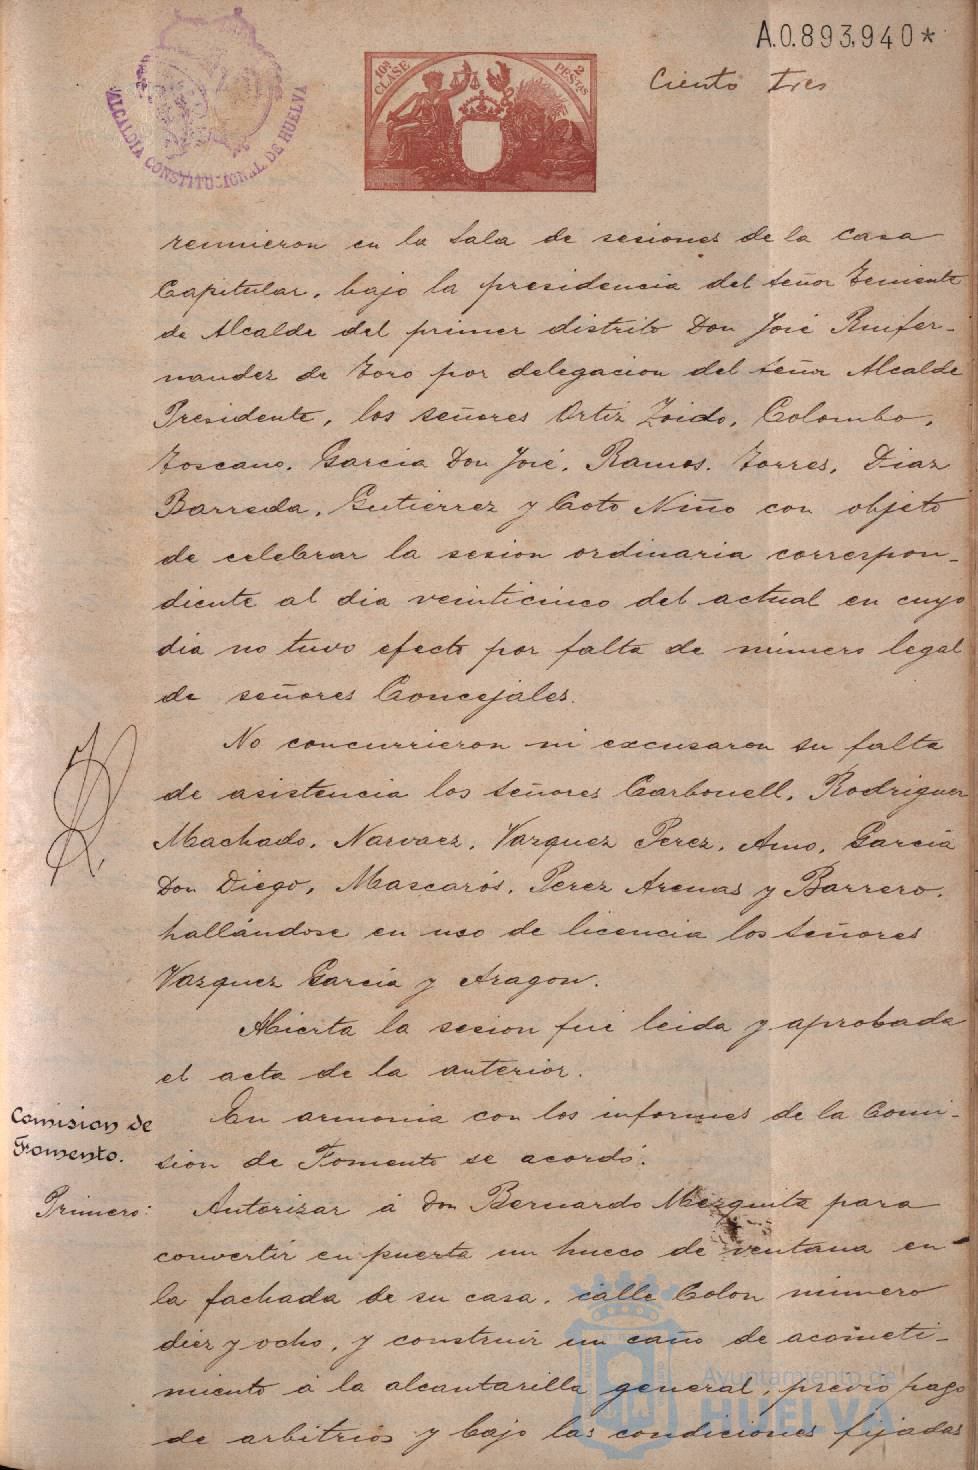 A.0.893,940*
Ciento tres
10ª CLASE
2 PESTAS
ALCALDIA CONSTITUCIONAL DE HUELVA
reunieron en la Sala de sesiones de la Casa
Capitular, bajo la presidencia del señor Teniente
de Alcalde del primer distrito Don José Ruifer-
nandez de Toro por delegacion del señor Alcalde
Presidente, los señores Ortiz Zoido, Colombo,
Toscano, Garcia Don José, Ramos, Torres, Diaz
Barreda, Gutierrez y Coto Niño con objeto
de celebrar la sesion ordinaria correspon-
diente al dia veinticinco del actual en cuyo
dia no tuvo efecto por falta de número legal
de señores Concejales.
No concurrieron ni excusaron su falta
de asistencia los señores Carbonell, Rodriguez
Machado, Narvaez, Vazquez Perez, Amo, Garcia
Don Diego, Mascarós, Perez Arenas y Barrero,
hallándose en uso de licencia los señores
Vazquez Garcia y Aragon.
Abierta la sesion fué leida y aprobada
el acta de la anterior.
Comision de
Fomento.
En armonia con los informes de la Comi-
sion de Fomento se acordó:
Primero:
Autorizar á Don Bernardo Mezquita para
convertir en puerta un hueco de ventana en
la fachada de su casa, calle Colon número
diez y ocho, y construir un caño de acometi-
miento á la alcantarilla general, previo pago
de arbitrios y bajo las condiciones fijadas
Ayuntamiento de
HUELVA